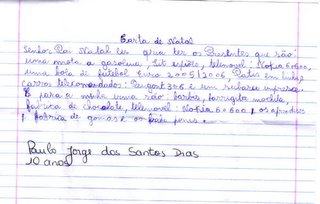 Carta de Natal
Senhor Pai Natal eu ter os Presentes que são:
uma mota a gasolina, kit espiões, telemovel: Nokia 6600,
uma bola de futebol Euro 2005/2006, Patins em linha,
carros telecomandados: Peugeot 306 e um
E para a minha uma são: barbie, barriguita mochila,
fabrica de chocolate, telemovel: Nokia 6600, os
fabrica de gomas e os
Paulo Jorge dos Santos Dias
10 anos